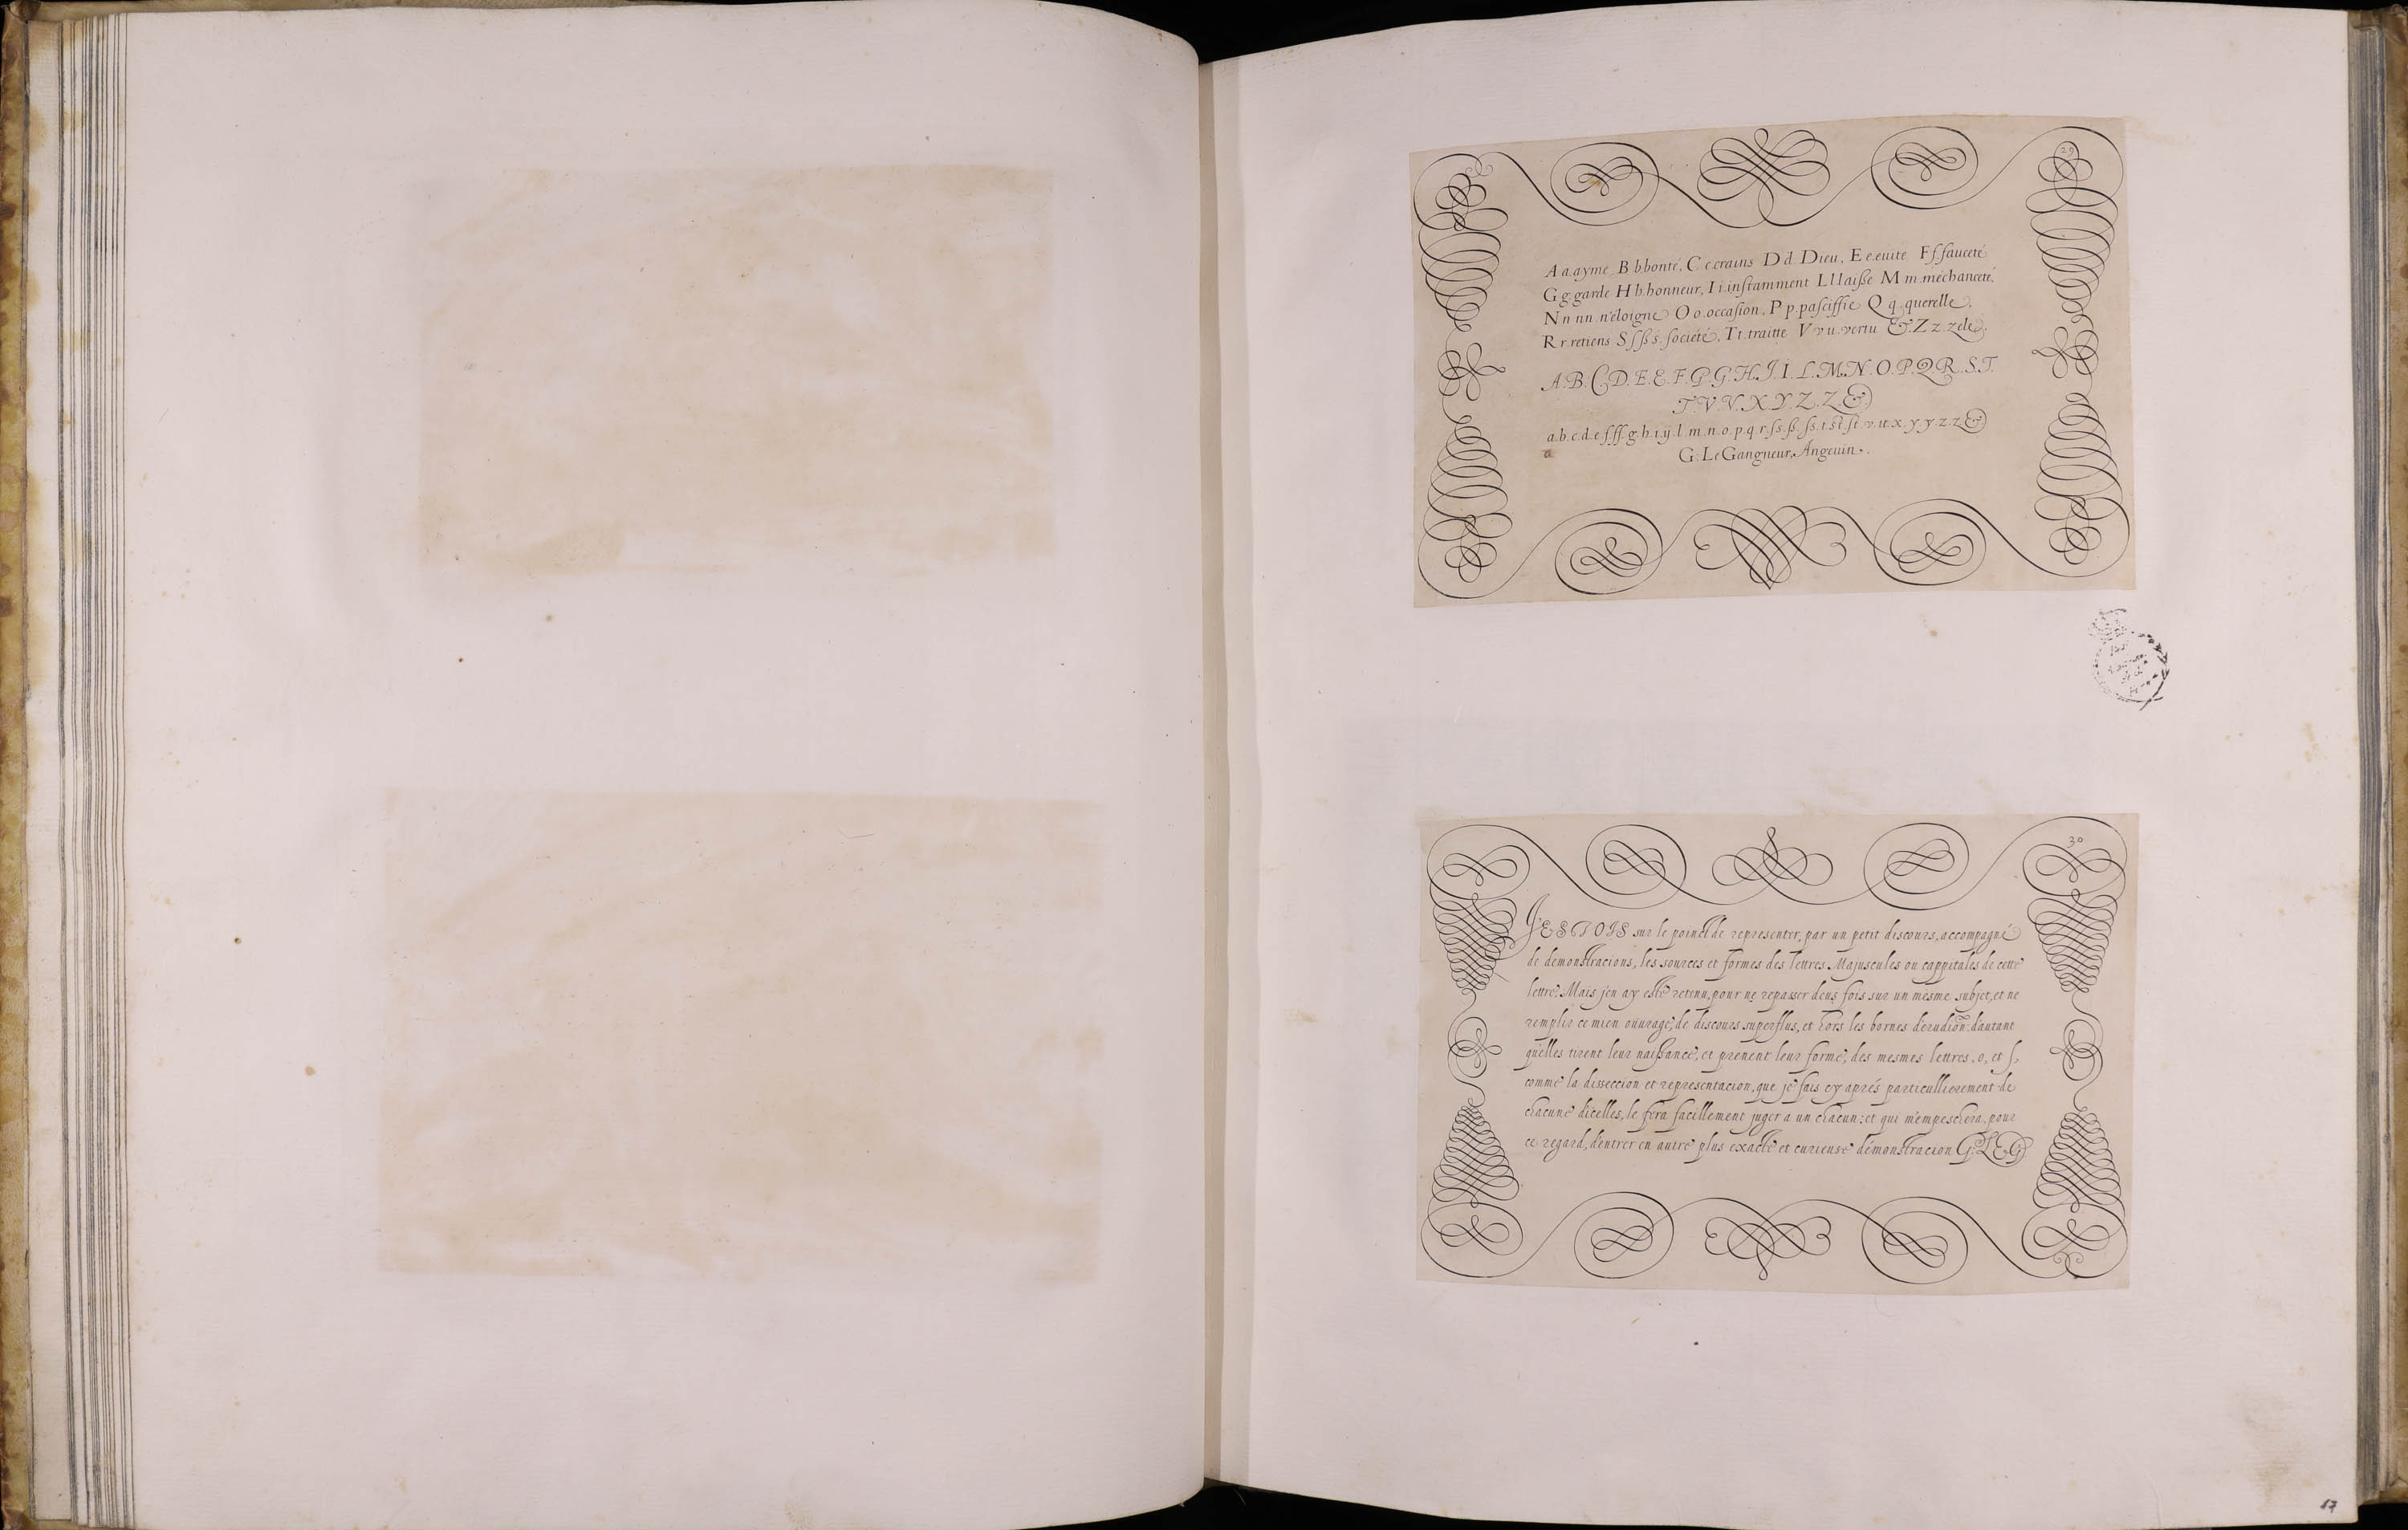 29
A a.ayme, B b.bonté, C c.crains D d. Dieu, E e.euite F f.fauceté
G g.garde H h.honneur, I i.inſtamment L l laiße M m.méchanceté,
N n nn.n'éloigne O o.occaſion, P p.paſciffie Q q.querelle,
R r.retiens S ſ ß s.ſociété, T t.traitte V v u.vertu & Z z.zele.
A.B.C.D.E.E.F.G.G.H.I.I.L.M.N.O.P.Q.R.S.T.
T.V.V.X.Y.Z.Z.&
G. Le Gangneur, Angeuin.
30
J'ESTOIS sur le poinct de representer, par un petit discours, accompagné
de demonstracions, les sources et formes des lettres Majuscules ou cappitales de cette
lettre. Mais j'en ay esté retenu, pour ne repasser deus fois sur un mesme subjet, et ne
remplir ce mien ouurage, de discours superflus, et hors les bornes d'erudiõn: d'autant
qu'elles tirent leur naißance, et prenent leur forme, des mesmes lettres .o, et ſ,
comme la disseccion et representacion, que je fais cy aprés particullierement de
chacune d'icelles, le fera facillement juger a un chacun: et qui m'empeschera, pour
ce regard, d'entrer en autre plus exacte et curieuse demonstracion G. L E G
17